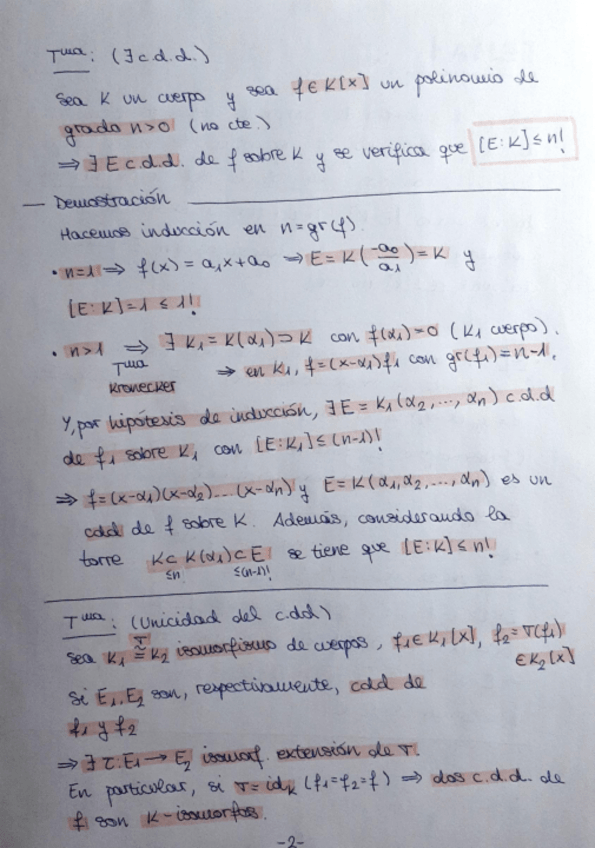 Tma: (∃ c.d.d.)
Sea K un cuerpo y sea f∈K[x] un polinomio de
grado n>0 (no cte.)
⇒ ∃ E c.d.d. de f sobre K y se verifica que [E:K]≤n!
— Demostración
Hacemos inducción en n=gr(f).
• n=1 ⇒ f(x) = a₁x+a₀ ⇒ E=K(-a₀/a₁)=K y
[E:K]=1 ≤ 1!
• n>1 ⇒ ∃ K₁=K(α₁)⊃K con f(α₁)=0 (K₁ cuerpo).
Tma Kronecker ⇒ en K₁, f=(x-α₁)f₁ con gr(f₁)=n-1.
Y, por hipótesis de inducción, ∃E=K₁(α₂,...,αn) c.d.d
de f₁ sobre K₁ con [E:K₁]≤(n-1)!
⇒ f=(x-α₁)(x-α₂)...(x-αn) y E=K(α₁,α₂,...,αn) es un
cdd de f sobre K. Además, considerando la
torre K⊂K(α₁)⊂E se tiene que [E:K]≤n!
≤n ≤(n-1)!
Tma: (Unicidad del c.dd)
Sea K₁ ≅ K₂ isomorfismo de cuerpos, f₁∈K₁[x], f₂=σ(f₁)
∈K₂[x]
Si E₁,E₂ son, respectivamente, cdd de
f₁ y f₂
⇒ ∃ τ:E₁→E₂ isomorf. extensión de σ.
En particular, si σ=idK (f₁=f₂=f) ⇒ dos c.d.d. de
f son K-isomorfos.
-2-